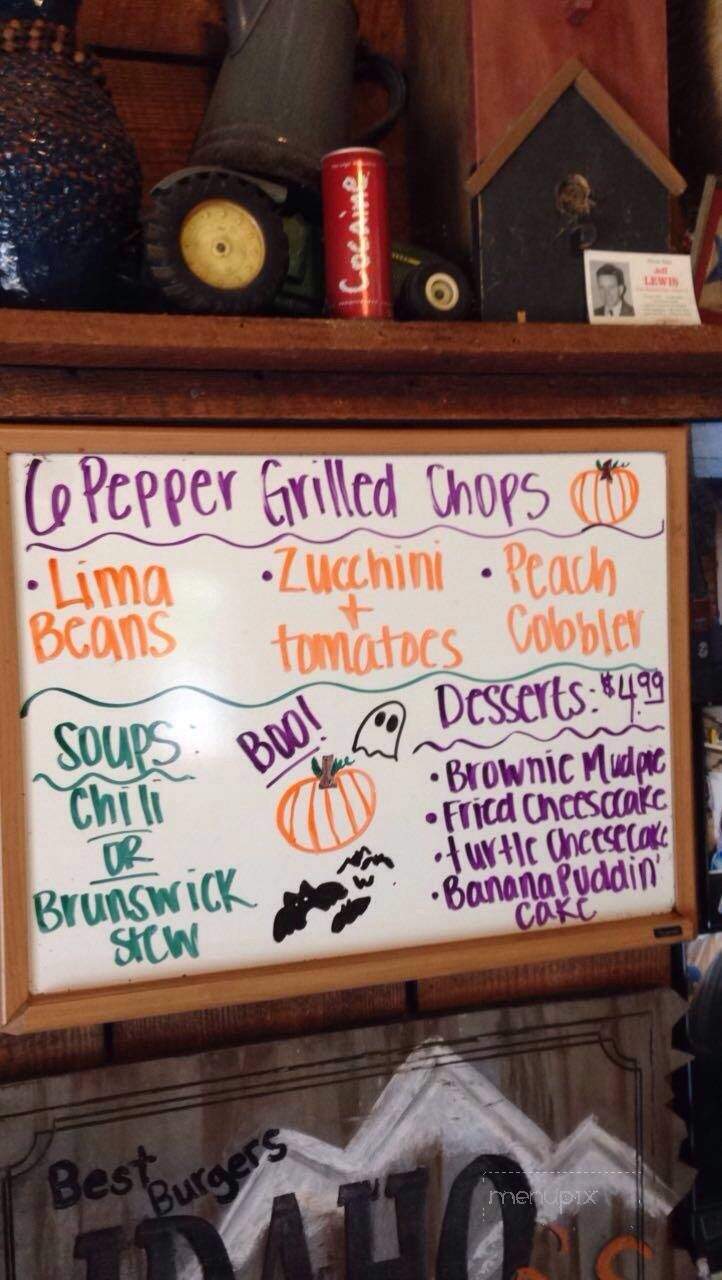 Cocaine
Jeff
LEWIS
6 Pepper Grilled Chops
• Lima
Beans
• Zucchini
+
tomatoes
• Peach
Cobbler
Soups
Chili
OR
Brunswick
Stew
BOO!
Desserts: $4.99
• Brownie Mudpie
• Fried Cheesecake
• turtle Cheesecake
• Banana Puddin'
Cake
Best
Burgers
IDAHO's
menupix